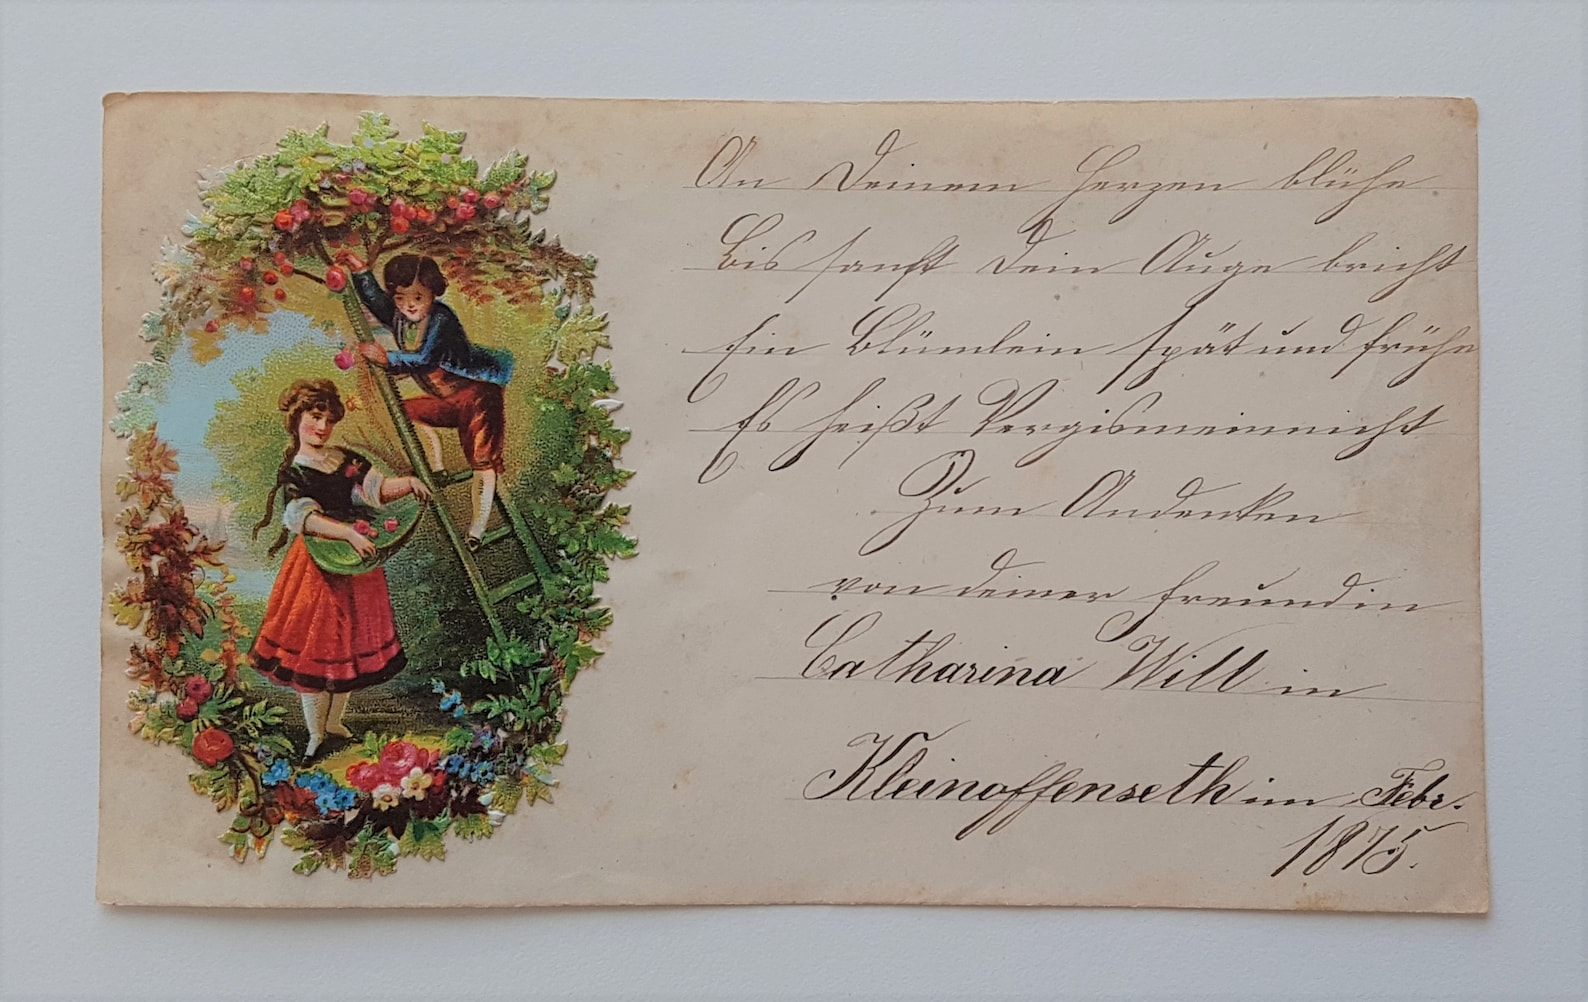 An Deinem Herzen blühe
Bis sanft Dein Auge bricht
Ein Blümlein spät und frühe
Es heißt Vergismeinnicht
Zum Andenken
von deiner Freundin
Catharina Will in
Kleinoffenseth im Febr.
1875.